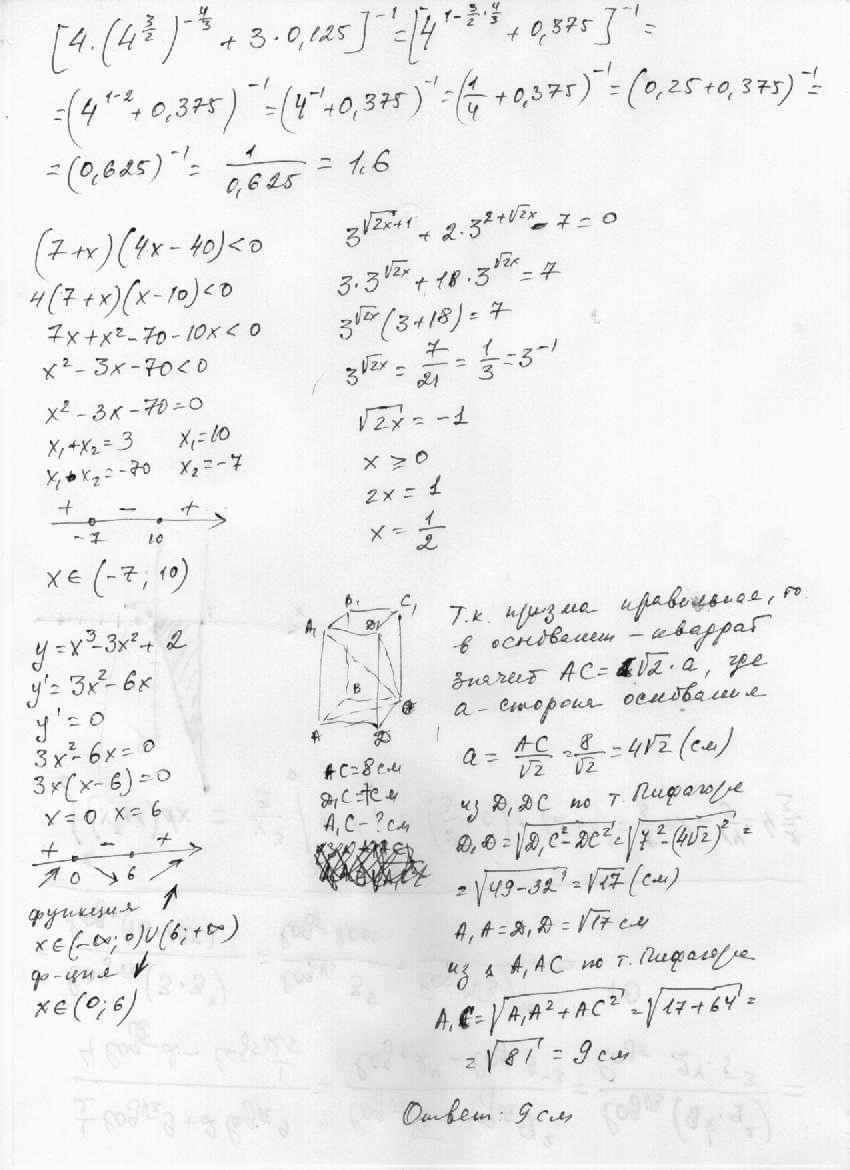 [4·(4^(3/2))^(-4/3) + 3·0,125]^(-1) = [4^(1-3/2·4/3) + 0,375]^(-1) =
=(4^(1-2)+0,375)^(-1) = (4^(-1)+0,375)^(-1) = (1/4+0,375)^(-1) = (0,25+0,375)^(-1) =
=(0,625)^(-1) = 1/0,625 = 1,6
(7+x)(4x-40)<0
4(7+x)(x-10)<0
7x+x²-70-10x<0
x²-3x-70<0
x²-3x-70=0
x₁+x₂=3 x₁=10
x₁·x₂=-70 x₂=-7
+ - +
-7 10
x∈(-7;10)
3^(√2x+1) + 2·3^(2+√2x) - 7 = 0
3·3^(√2x) + 18·3^(√2x) = 7
3^(√2x)(3+18) = 7
3^(√2x) = 7/21 = 1/3 = 3^(-1)
√2x = -1
x ⩾ 0
2x = 1
x = 1/2
y=x³-3x²+2
y'=3x²-6x
y'=0
3x²-6x=0
3x(x-6)=0
x=0 x=6
+ - +
↗ 0 ↘ 6 ↗
функция ↑
x∈(-∞;0)∪(6;+∞)
ф-ция ↓
x∈(0;6)
B₁ C₁
A₁ D₁
B
A D
AC=8см
D₁C=7см
A₁C-?см
Т.к. призма правильная, то
в основании - квадрат
значит AC=√2·a, где
a-сторона основания
a = AC/√2 = 8/√2 = 4√2 (см)
из D₁DC по т. Пифагора
D₁D=√(D₁C²-DC²)=√(7²-(4√2)²)=
=√(49-32)=√17 (см)
A₁A=D₁D=√17см
из A₁AC по т. Пифагора
A₁C=√(A₁A²+AC²)=√(17+64)=
=√81 = 9см
Ответ: 9см